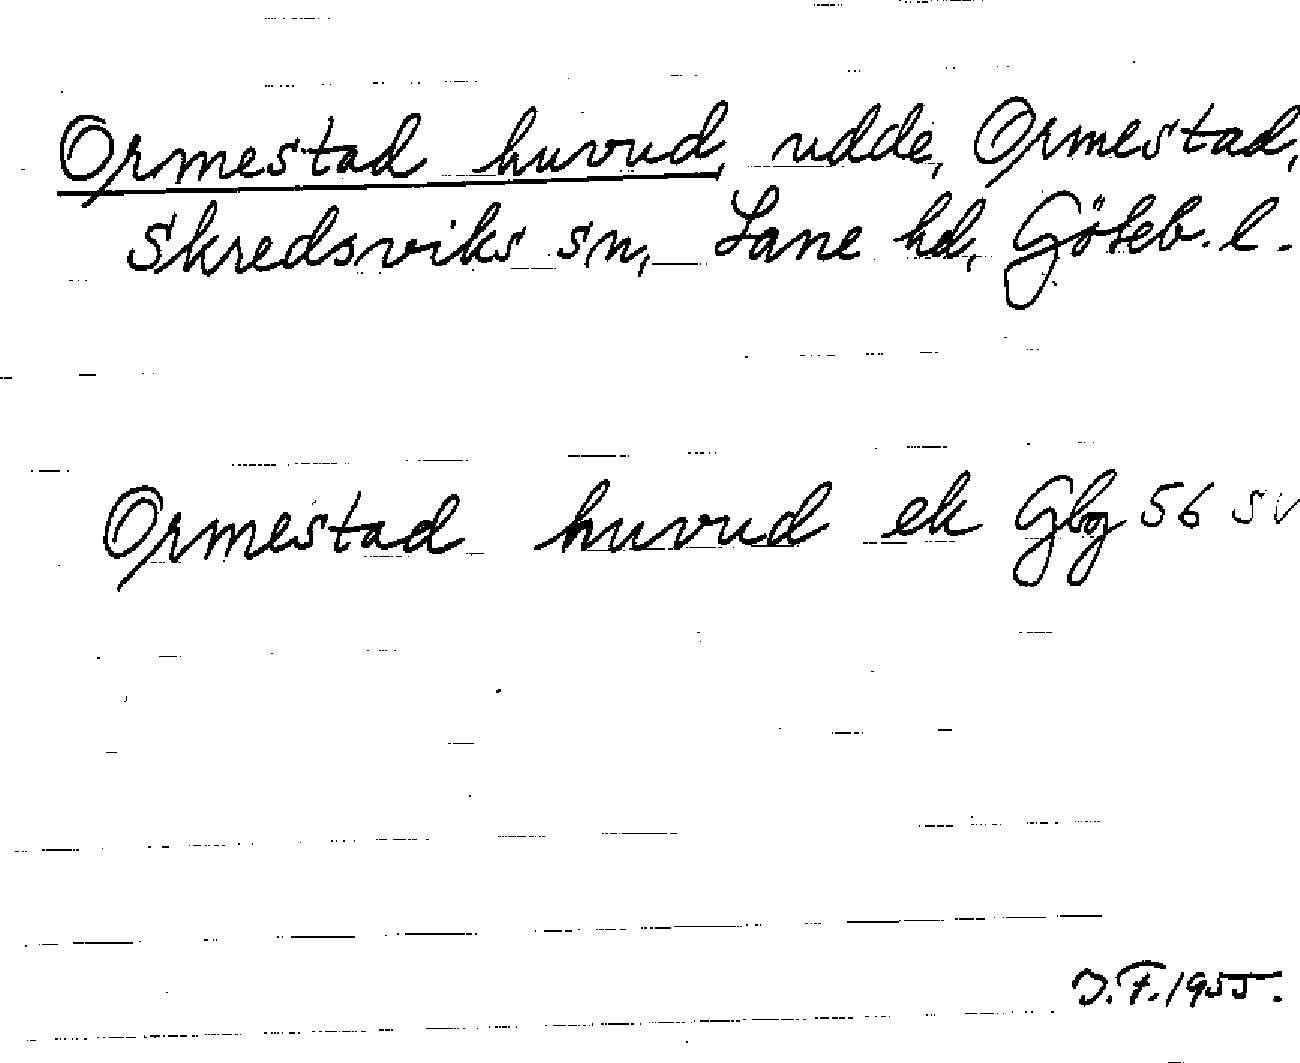 Ormestad huvud, udde, Ormestad,
Skredsviks sn, Lane hd, Göteb. l.
Ormestad huvud ek Gbg 56 SV
J.F. 1955.